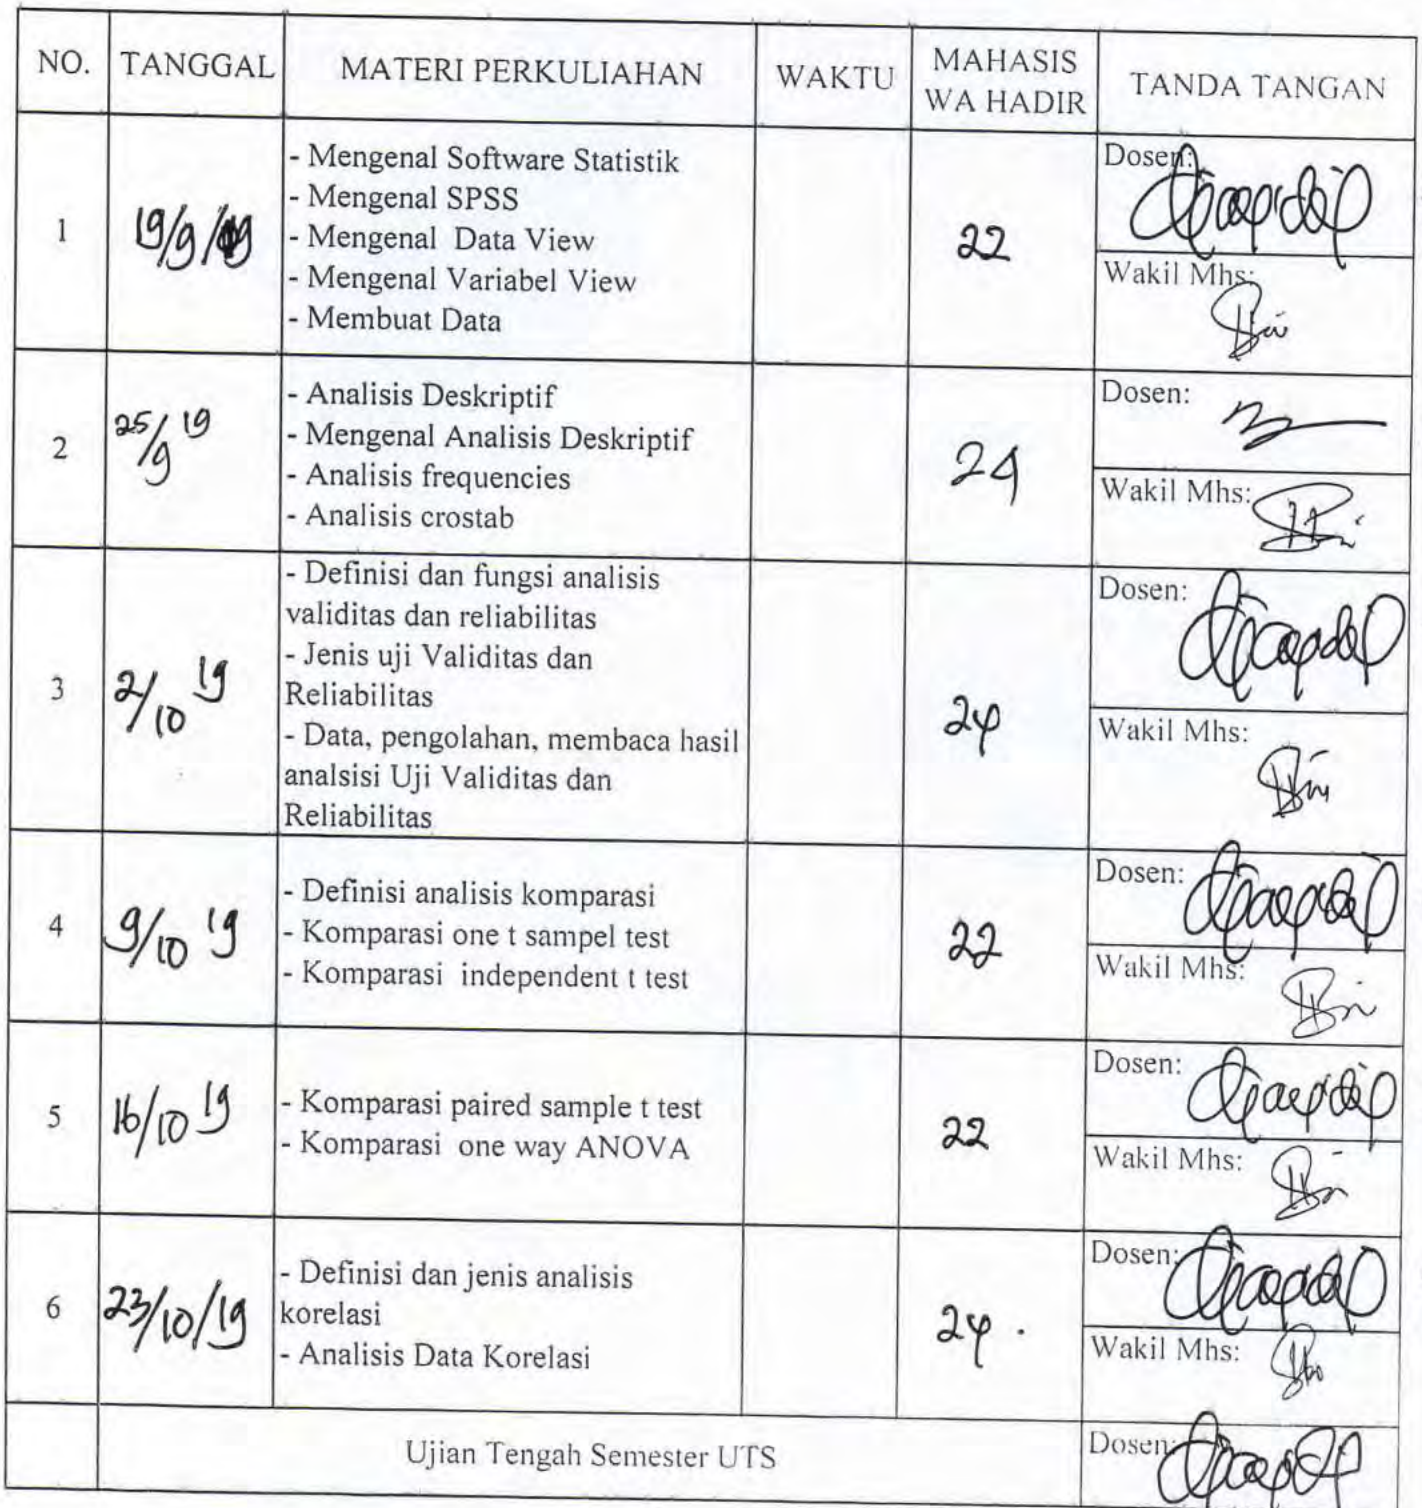 NO. TANGGAL MATERI PERKULIAHAN WAKTU MAHASIS WA HADIR TANDA TANGAN
1 19/9/19
- Mengenal Software Statistik
- Mengenal SPSS
- Mengenal Data View
- Mengenal Variabel View
- Membuat Data
22
Dosen:
Wakil Mhs:
2 25/9 19
- Analisis Deskriptif
- Mengenal Analisis Deskriptif
- Analisis frequencies
- Analisis crostab
24
Dosen:
Wakil Mhs:
3 2/10 19
- Definisi dan fungsi analisis
validitas dan reliabilitas
- Jenis uji Validitas dan
Reliabilitas
- Data, pengolahan, membaca hasil
analsisi Uji Validitas dan
Reliabilitas
24
Dosen:
Wakil Mhs:
4 9/10 19
- Definisi analisis komparasi
- Komparasi one t sampel test
- Komparasi independent t test
22
Dosen:
Wakil Mhs:
5 16/10 19
- Komparasi paired sample t test
- Komparasi one way ANOVA
22
Dosen:
Wakil Mhs:
6 23/10/19
- Definisi dan jenis analisis
korelasi
- Analisis Data Korelasi
24 .
Dosen:
Wakil Mhs:
Ujian Tengah Semester UTS
Dosen: